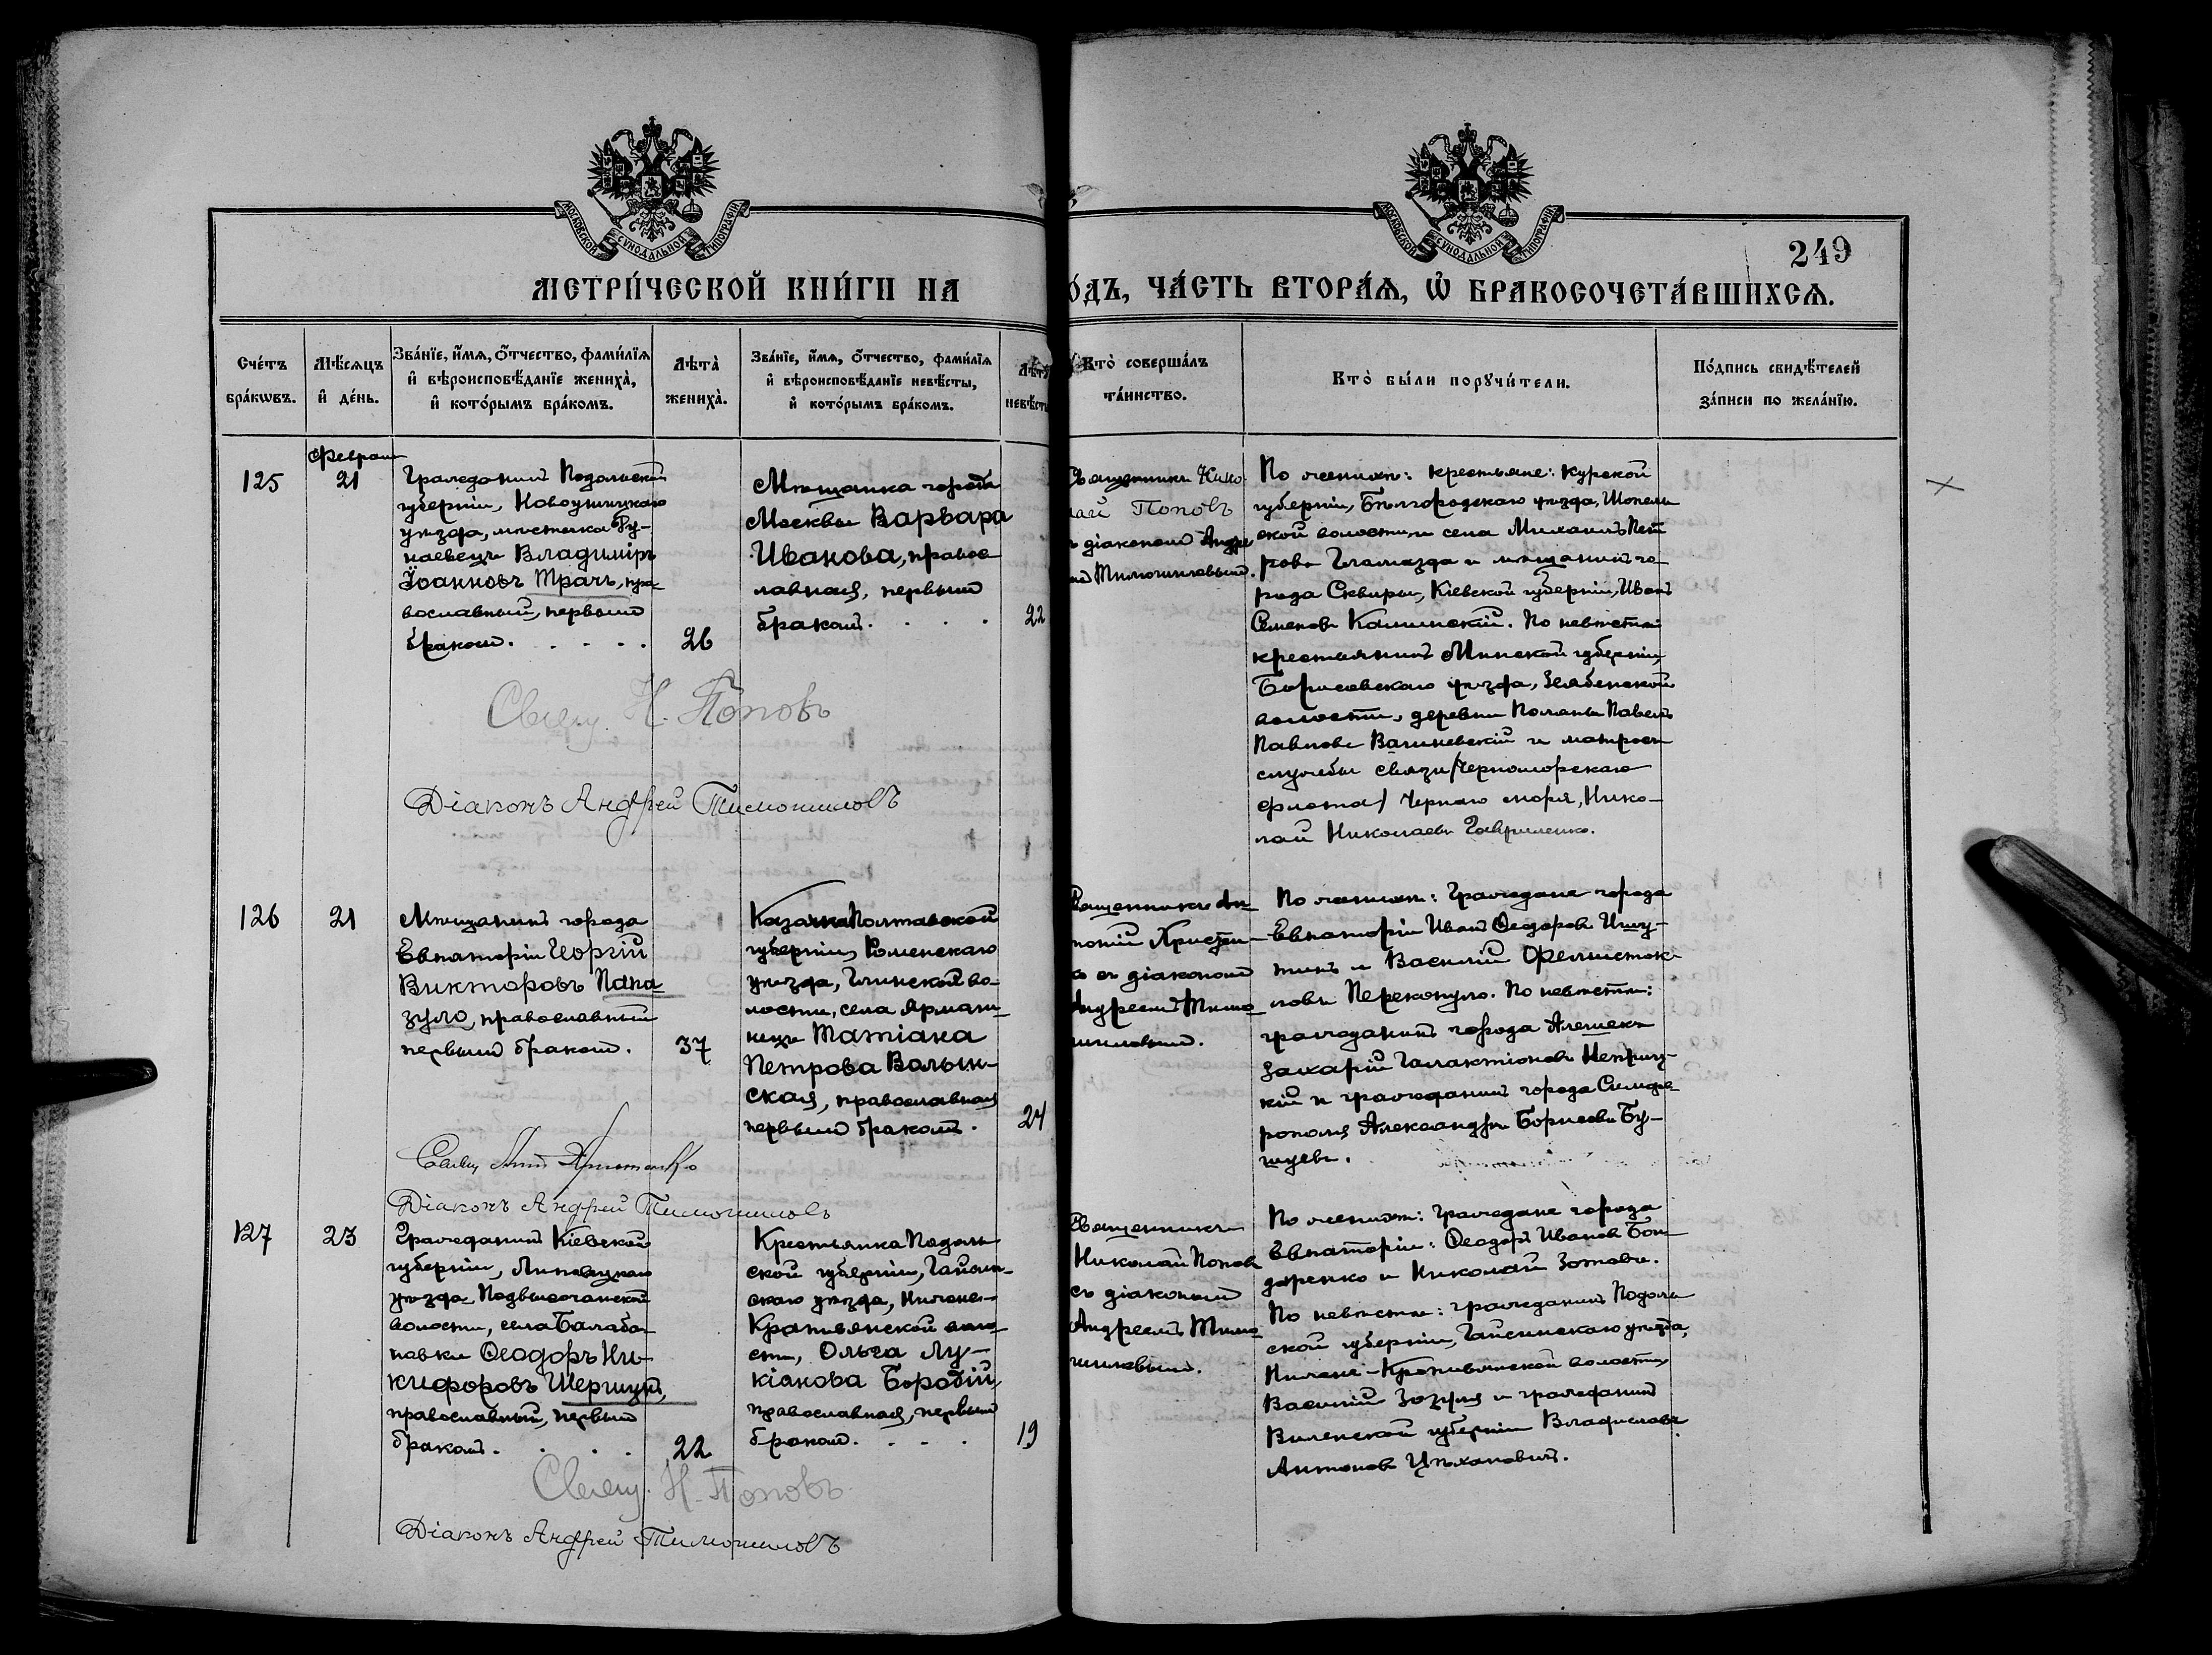 МОСКОВСКОЙ СѴНОДАЛЬНОЙ ТИПОГРАФІИ
МОСКОВСКОЙ СѴНОДАЛЬНОЙ ТИПОГРАФІИ
249
МЕТРИ́ЧЕСКОЙ КНИ́ГИ НА
О́ДЪ, ЧА́СТЬ ВТОРА́Я, Ѡ БРАКОСОЧЕТА́ВШИХСЯ.
Сче́тъ бра́кѡвъ.
Мѣ́сяцъ и де́нь.
Зва́нїе, и́мя, о́тчество, фами́лїя
и вѣроисповѣ́данїе жениха̀,
и кото́рымъ бра́комъ.
Лѣта̀ жениха̀.
Зва́нїе, и́мя, о́тчество, фами́лїя
и вѣроисповѣ́данїе невѣ́сты,
и кото́рымъ бра́комъ.
Лѣта невѣсты
Кто̀ соверша́лъ
та́инство.
Кто̀ бы́ли порꙋчи́тели.
По́дпись свидѣ́телей
за́писи по жела́нїю.
125
Феврал
21
Гражданинъ Подольской
губерніи, Новоушицкаго
уѣзда, мѣстечка Ду-
наевецъ Владиміръ
Іоанновъ Трачъ, пра-
вославный, первымъ
бракомъ.
26
Мѣщанка города
Москвы Варвара
Иванова, правос
лавная, первымъ
бракомъ.
22
Священникъ Нико
лай Поповъ
ъ діакономъ Андре
мъ Тимошиловымъ.
По женихѣ: крестьяне: Курской
губерніи, Бѣлгородскаго уѣзда,
ской волости и села Михаилъ Пет
ровъ и мѣщанинъ го-
рода Сквиры, Кіевской губерніи, Иванъ
Семеновъ Калинскій. По невѣстѣ:
крестьянинъ Минской губерніи,
Борисовскаго уѣзда,
волости, деревни Поляны Павелъ
Павловъ и матросъ
службы связи /Черноморскаго
флота/ Чернаго моря, Нико-
лай Николаевъ Гавриленко.
Свящ. Н. Поповъ
Діаконъ Андрей Тимошиловъ
126
21
Мѣщанинъ города
Евпаторіи Георгій
Викторовъ Папа
зуло, православный
первымъ бракомъ.
37
Казачка Полтавской
губерніи, Роменскаго
уѣзда, Глинской во-
лости, села Ярмаш
Татіана
Петрова Волын-
ская, православная
первымъ бракомъ.
24
Священникъ Ан
тоній Христен-
о съ діакономъ
Андреемъ Тимо
шиловымъ.
По женихѣ: Граждане города
Евпаторіи Иванъ Ѳеодоровъ
и Василій
ловъ Перекопуло. По невѣстѣ:
гражданинъ города Алешекъ
Захарій Галактіоновъ
кій и гражданинъ города Симфе-
рополя Александръ Борисовъ Бу-
шуевъ.
Свящ. Ант. Христенко
Діаконъ Андрей Тимошиловъ
127
23
Гражданинъ Кіевской
губерніи, Липовецкаго
уѣзда Подвысочанской
волости, села Балаба-
новки Ѳеодоръ Ни-
кифоровъ Шершунъ,
православный, первымъ
бракомъ.
22
Крестьянка Подоль
ской губерніи, Гайсин-
скаго уѣзда, Нижне-
Крапивянской воло
сти, Ольга Лу-
кіанова Бородій,
православная, первымъ
бракомъ.
19
Священникъ
Николай Поповъ
съ діакономъ
Андреемъ Тимо
шиловымъ.
По женихѣ: Граждане города
Евпаторіи: Ѳеодоръ Ивановъ Бон
даренко и Николай Зотовъ.
По невѣстѣ: гражданинъ Подоль
ской губерніи, Гайсинскаго уѣзда,
Нижне-Кропивянской волости
Василій Зозуля и гражданинъ
Виленской губерніи Владиславъ
Антоновъ Цѣхановичъ.
Свящ. Н. Поповъ
Діаконъ Андрей Тимошиловъ